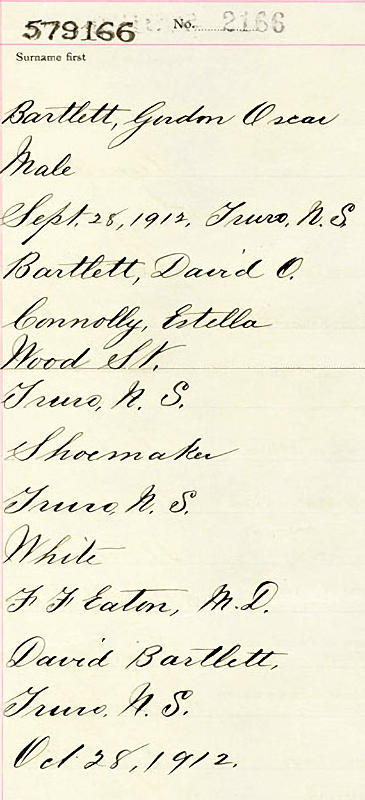 579166 No. 2166
Surname first
Bartlett, Gordon Oscar
Male
Sept. 28, 1912, Truro, N. S.
Bartlett, David O.
Connolly, Estella
Wood St.
Truro, N. S.
Shoemaker
Truro, N. S.
White
F F Eaton, M.D.
David Bartlett,
Truro, N. S.
Oct 28, 1912.